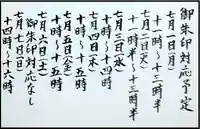 御朱印対応予定
七月一日(月)
十一時〜十三時
七月二日(火)
十一時半〜十三時半
七月三日(水)
十時〜十四時
七月四日(木)
十時〜十五時
七月五日(金)
十時〜十五時
七月六日(土)
御朱印対応なし
七月七日(日)
十四時〜十六時